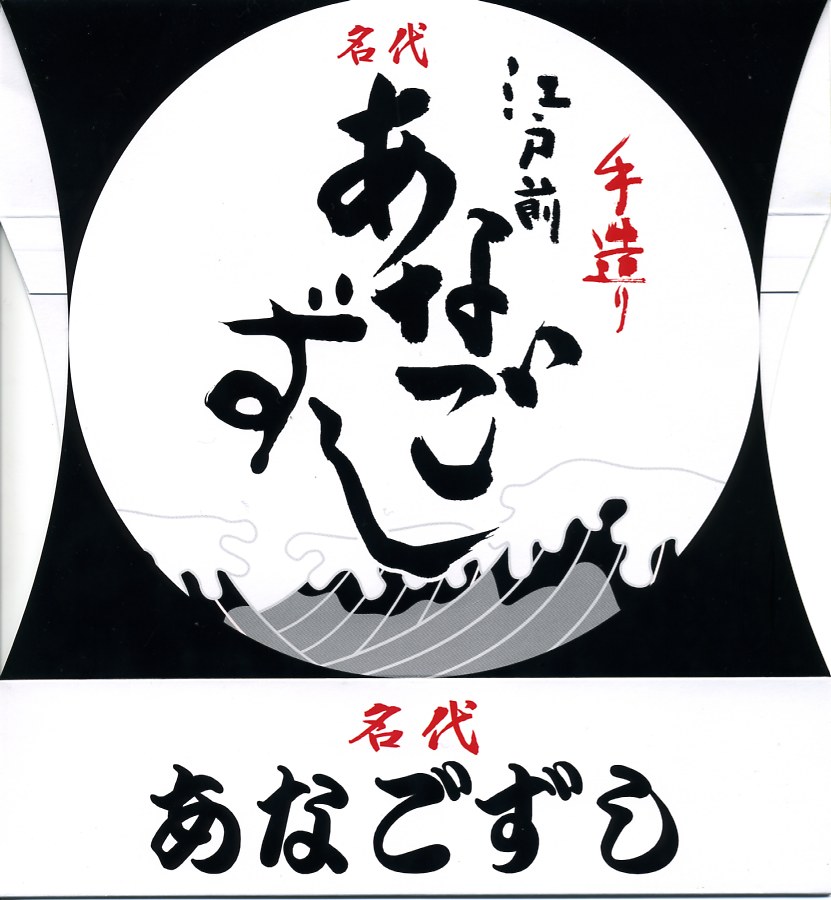 手造り
江戸前
名代
あなご
ずし
名代
あなごずし